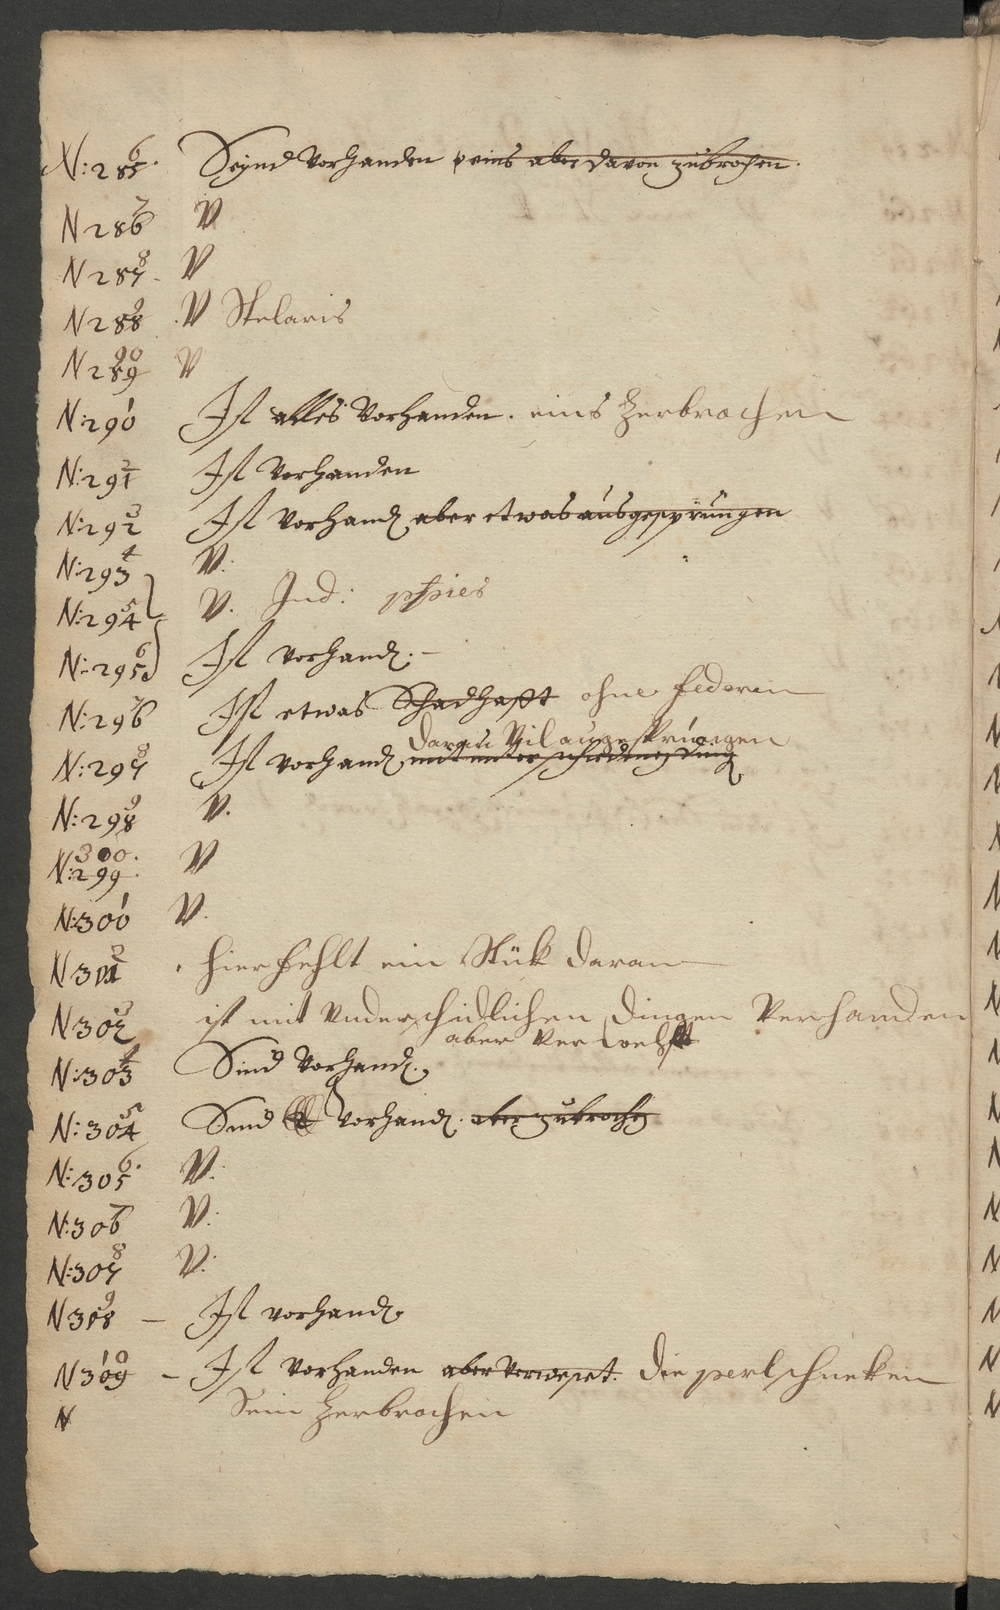 N: 285 6. Seynd Vorhanden eins aber davon zübrochen.
N 286 7 V
N 287 8 V
N 288 9 V Stelaris
N 289 90 V
N: 290 1 Ist alles Vorhanden. eins Zerbrochen
N: 291 2 Ist Vorhanden
N: 292 3 Ist Vorhand aber etwas ausgesprungen
N: 293 4 V.
N: 294 5 V. Ind:
N: 295 6 Ist vorhand.
N: 296 7 Ist etwas Schadhafft ohne federen
daran Vil ausgesprüngen
N: 297 8 Ist vorhand
N: 298 9 V.
300.
N: 299 V
N: 300 1 V.
N 301 2 hier fehlt ein Stük daran
N 302 3 ist mit Underschidlichen Dingen Verhanden
aber
N: 303 4 Sind Vorhand.
N: 304 5 Sind vorhand. aber zubroche
N: 305 6. V.
N: 306 7 V.
N: 307 8 V.
N 308 9 – Ist vorhand.
N 309 10 – Ist Vorhanden aber Verweset. Die perlschneken
N Sein Zerbrochen